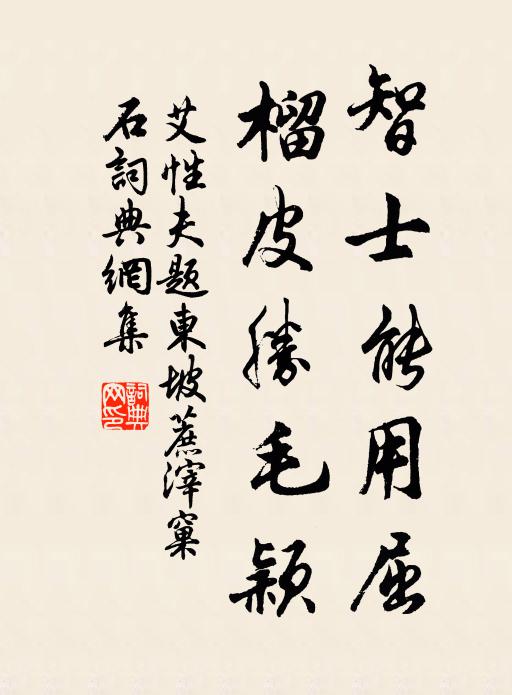 智士能用屈
榴皮勝毛穎
艾性夫題東坡蔗滓窠
石詞典網集
詞典
網印